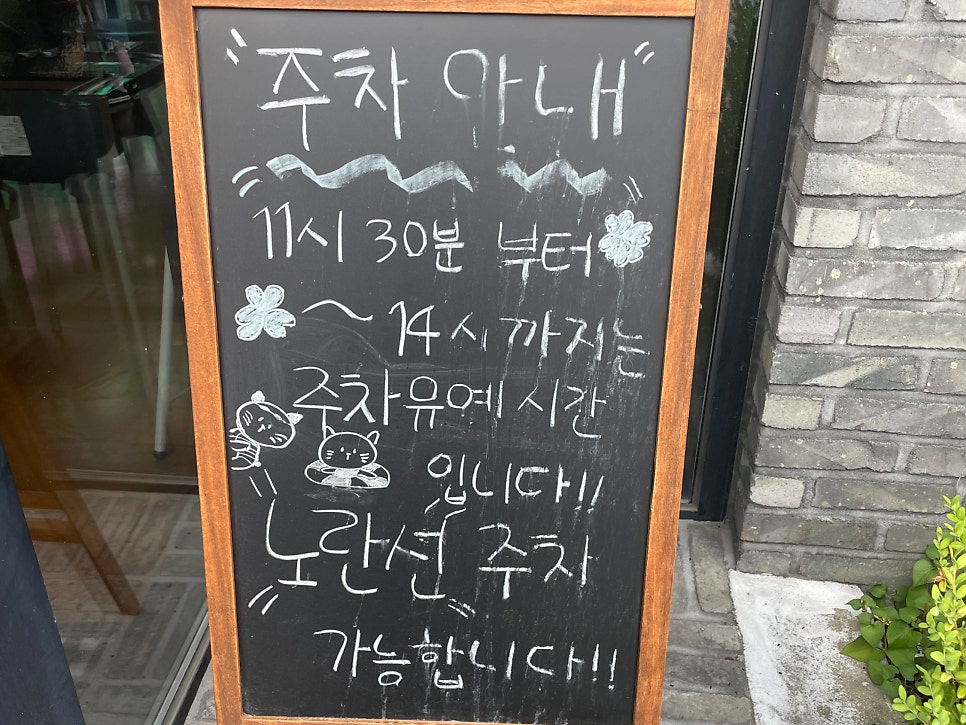 "주차 안내"
11시 30분 부터
~ 14시 까지는
주차유예 시간
입니다!!
노란션 주차
가능합니다!!